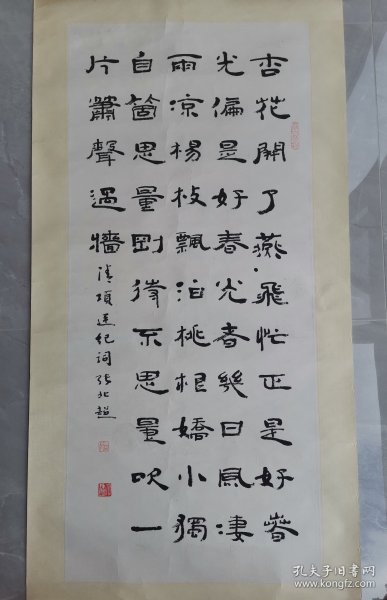 杏花開了燕飛忙正是好春
光偏是好春光者幾日風淒
雨涼楊枝飄泊桃根嬌小獨
自箇思量剛待不思量吹一
片簫聲過牆
清項廷紀詞張北超
孔夫子旧书网